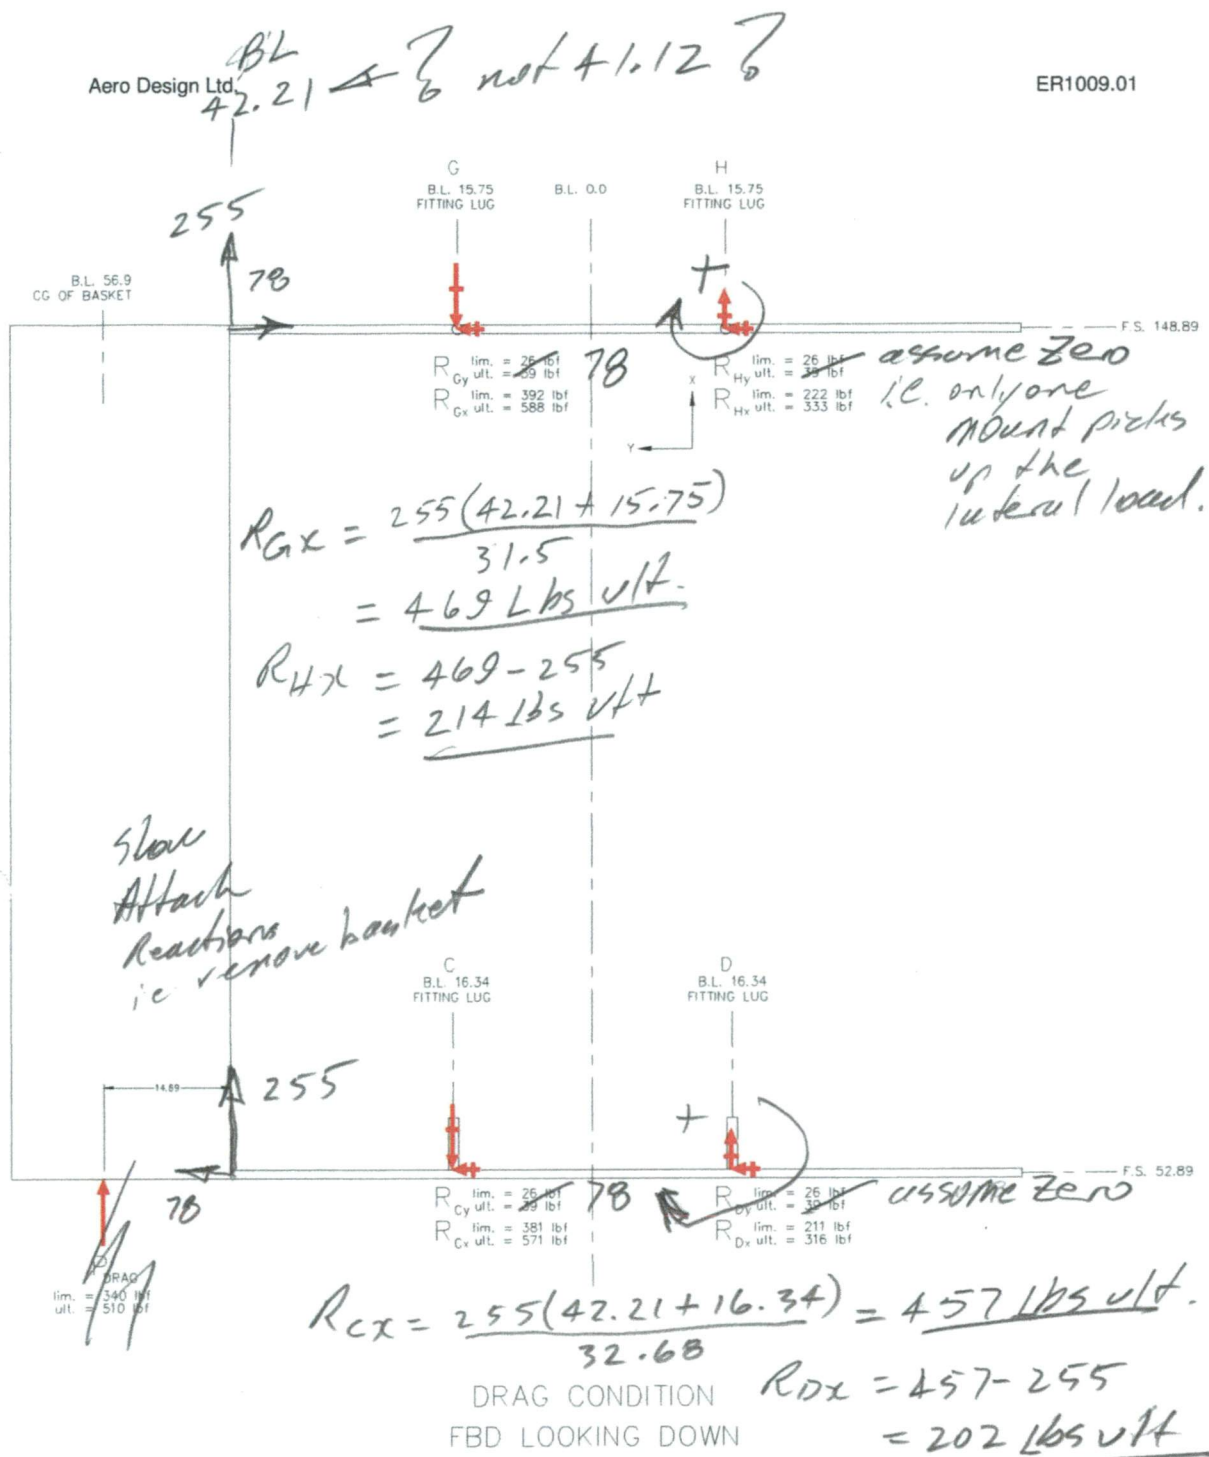 BL
Aero Design Ltd.
42.21 ← ? not 41.12 ?
ER1009.01
G
B.L. 15.75
FITTING LUG
B.L. 0.0
H
B.L. 15.75
FITTING LUG
255
78
B.L. 56.9
CG OF BASKET
+
F.S. 148.89
R Gy lim. = 26 lbf
ult. = 39 lbf
78
R Gx lim. = 392 lbf
ult. = 588 lbf
R Hy lim. = 26 lbf
ult. = 39 lbf
R Hx lim. = 222 lbf
ult. = 333 lbf
assume zero
i.e. only one
mount picks
up the
lateral load.
X
Y
RGx = 255(42.21 + 15.75)
31.5
= 469 Lbs ult.
RHx = 469 - 255
= 214 Lbs ult
Show
Attach
Reactions
i.e remove basket
C
B.L. 16.34
FITTING LUG
D
B.L. 16.34
FITTING LUG
14.69
255
+
78
F.S. 52.89
R Cy lim. = 26 lbf
ult. = 39 lbf
78
R Cx lim. = 381 lbf
ult. = 571 lbf
R Dy lim. = 26 lbf
ult. = 39 lbf
R Dx lim. = 211 lbf
ult. = 316 lbf
assume zero
P DRAG
lim. = 340 lbf
ult. = 510 lbf
RCx = 255(42.21 + 16.34) = 457 Lbs ult.
32.68
DRAG CONDITION
FBD LOOKING DOWN
RDx = 457 - 255
= 202 Lbs ult